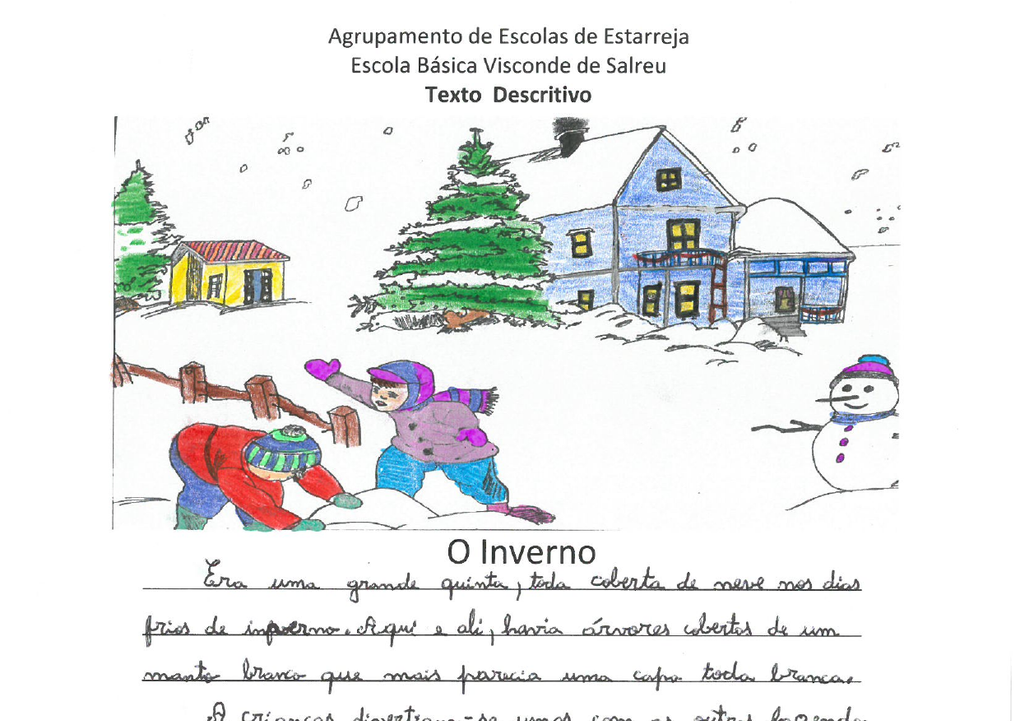 Agrupamento de Escolas de Estarreja
Escola Básica Visconde de Salreu
Texto Descritivo
O Inverno
Era uma grande quinta, toda coberta de neve nos dias
frios de inverno. Aqui e ali, havia árvores cobertas de um
manto branco que mais parecia uma capa toda branca.
A crianças divertiam-se umas com as outras fazendo